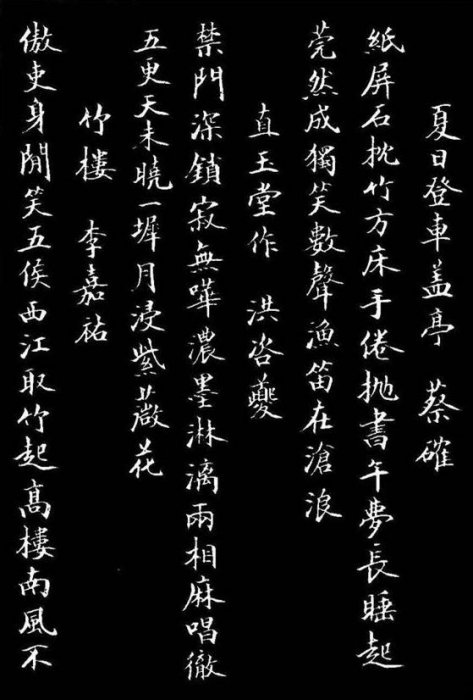 夏日登車盖亭　蔡確
紙屏石枕竹方床手倦抛書午夢長睡起
莞然成獨笑數聲漁笛在滄浪
直玉堂作　洪咨夔
禁門深鎖寂無嘩濃墨淋漓兩相麻唱徹
五更天未曉一墀月浸紫薇花
竹樓　李嘉祐
傲吏身閒笑五侯西江取竹起高樓南風不